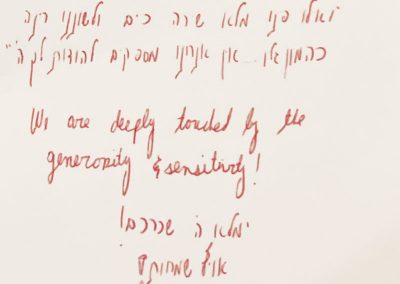 "ואלו פינו מלא שרה כים ולשוננו רנה
כהמון גליו... אין אנחנו מספקים להודות לך ה'"
We are deeply touched by the
generosity & sensitivity!
ימלא ה' שכרכם!
אויף שמחות